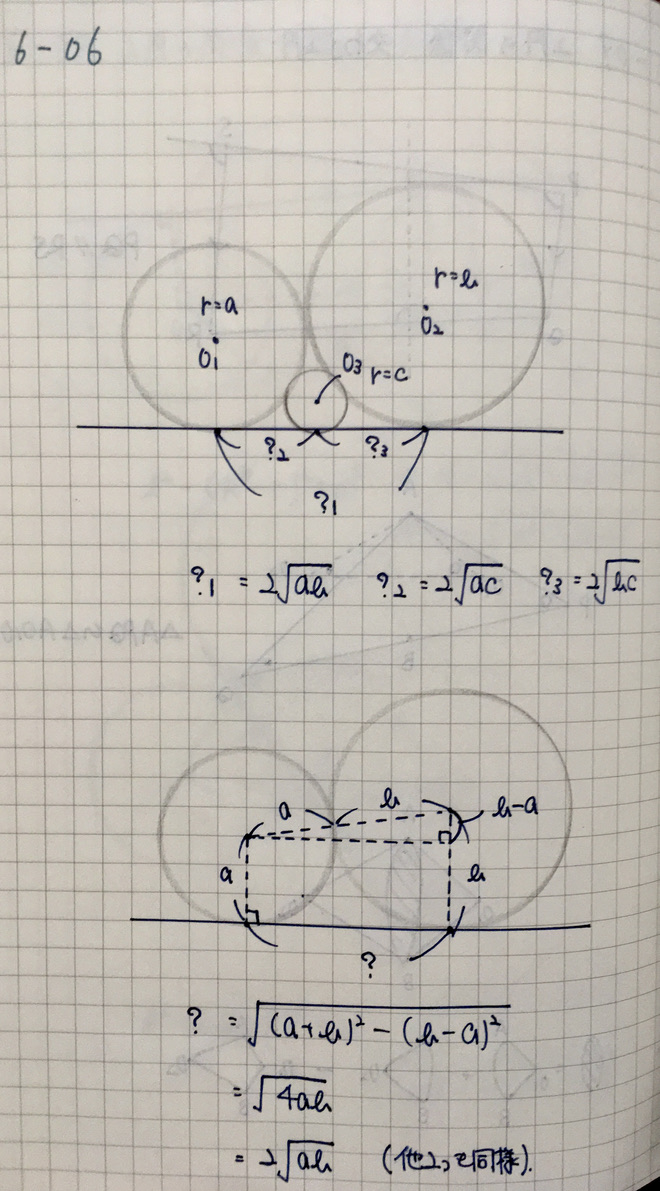 6-06
r=a
O1
r=b
O2
O3 r=c
?2 ?3
?1
?1 = 2√ab ?2 = 2√ac ?3 = 2√bc
a b b-a
a b
?
? = √(a+b)² - (b-a)²
= √4ab
= 2√ab (他2つも同様).